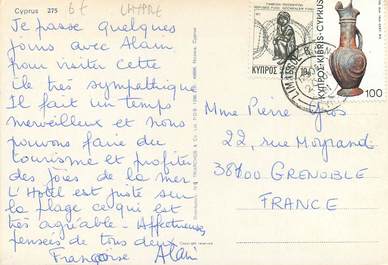 Cyprus 275
6f
Je passe quelques
jours avec Alain
pour visiter cette
île très sympathique
Il fait un temps
merveilleux et nous
pouvons faire du
tourisme et profiter
des joies de la mer
L'Hotel est juste sur
la plage ce qui est
très agréable - Affectueuses
pensées de tous deux
Françoise Alain
ΚΥΠΡΟΣ KIBRIS CYPRUS
100
Mme Pierre Gros
22, rue Moyrand
38100 GRENOBLE
FRANCE